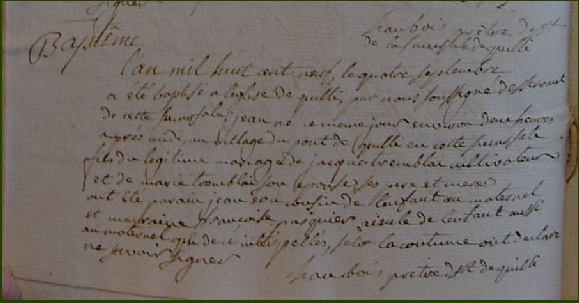 signer
chaubois prêtre
de la succursale de quilli
Baptême
l'an mil huit cent neuf, le quatre septembre
a été baptisé a léglise de quilli, par nous soussigné desservant
de cette succursale, jean né ce même jour environ deux heures
après midi, au village du pont de quilli en cette succursale
fils du légitime mariage de jacque tremblai cultivateur
et de marie tremblai son epouse ses pere et mere
ont été parain jean cousin de lenfant au maternel
et marraine françoise pasquier de lenfant aussi
au maternel que de ce interpellés, selon la coutume ont declaré
ne savoir signer
chaubois prêtre de quilli